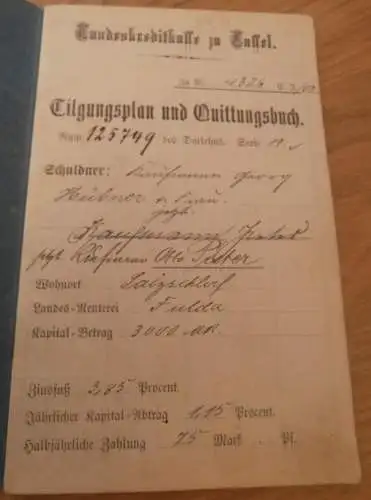 Landeskreditkasse zu Cassel.
Zu Nr. 4326
Tilgungsplan und Quittungsbuch.
Num. 125749 des Darlehns. Serie 19
Schuldner: Kaufmann Georg
Hübner u. Frau
jetzt
Kaufmann
jetzt Kaufmann Otto
Wohnort Salzschlirf
Landes-Renterei Fulda
Kapital-Betrag 3000 M.
Zinsfuß 3,85 Procent.
Jährlicher Kapital-Abtrag 1,15 Procent.
Halbjährliche Zahlung 75 Mark - Pf.